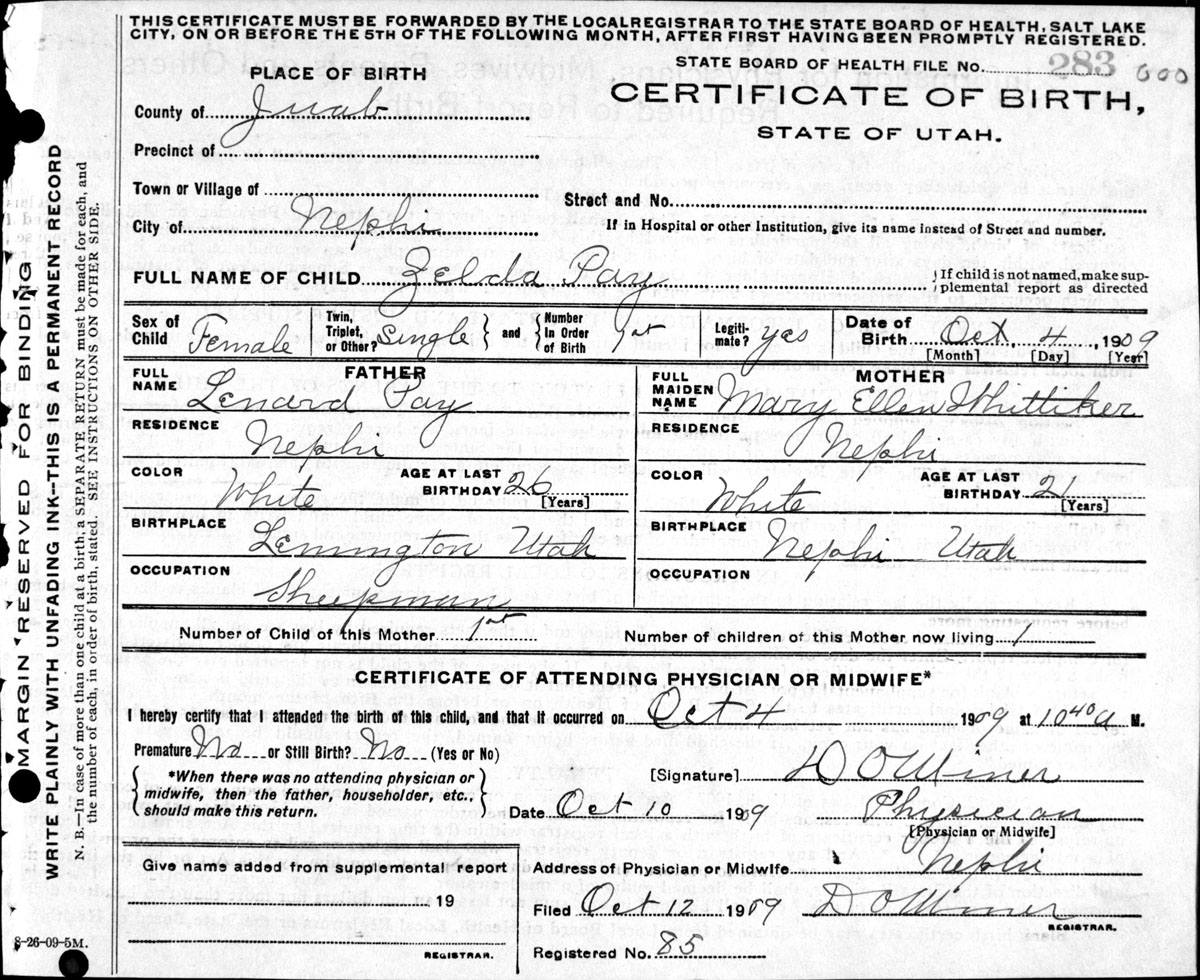 THIS CERTIFICATE MUST BE FORWARDED BY THE LOCAL REGISTRAR TO THE STATE BOARD OF HEALTH, SALT LAKE
CITY, ON OR BEFORE THE 5TH OF THE FOLLOWING MONTH, AFTER FIRST HAVING BEEN PROMPTLY REGISTERED.
STATE BOARD OF HEALTH FILE NO. 283 000
PLACE OF BIRTH
CERTIFICATE OF BIRTH,
STATE OF UTAH.
County of Juab
Precinct of
Town or Village of
Street and No.
City of Nephi
If in Hospital or other Institution, give its name instead of Street and number.
FULL NAME OF CHILD Zelda Pay
If child is not named, make sup-
plemental report as directed
Sex of Child Female
Twin, Triplet, or Other? Single
and Number In Order of Birth 1st
Legiti-mate? yes
Date of Birth Oct. 4, 1909
[Month] [Day] [Year]
FATHER
FULL NAME Lenard Pay
MOTHER
FULL MAIDEN NAME Mary Ellen Whittiker
RESIDENCE Nephi
RESIDENCE Nephi
COLOR White AGE AT LAST BIRTHDAY 26 [Years]
COLOR White AGE AT LAST BIRTHDAY 21 [Years]
BIRTHPLACE Lemington Utah
BIRTHPLACE Nephi Utah
OCCUPATION Sheepman
OCCUPATION
Number of Child of this Mother 1st
Number of children of this Mother now living 1
CERTIFICATE OF ATTENDING PHYSICIAN OR MIDWIFE*
I hereby certify that I attended the birth of this child, and that it occurred on Oct 4 1909 at 10 40 a M.
Premature No or Still Birth? No (Yes or No)
*When there was no attending physician or
midwife, then the father, householder, etc.,
should make this return.
[Signature] D O Miner
Date Oct 10 1909 Physician
[Physician or Midwife]
Give name added from supplemental report
19
REGISTRAR.
Address of Physician or Midwife Nephi
Filed Oct 12 1909 D O Miner
REGISTRAR.
Registered No. 85
8-26-09-5M.
MARGIN RESERVED FOR BINDING
WRITE PLAINLY WITH UNFADING INK—THIS IS A PERMANENT RECORD
N. B.—In case of more than one child at a birth, a SEPARATE RETURN must be made for each, and
the number of each, in order of birth, stated. SEE INSTRUCTIONS ON OTHER SIDE.